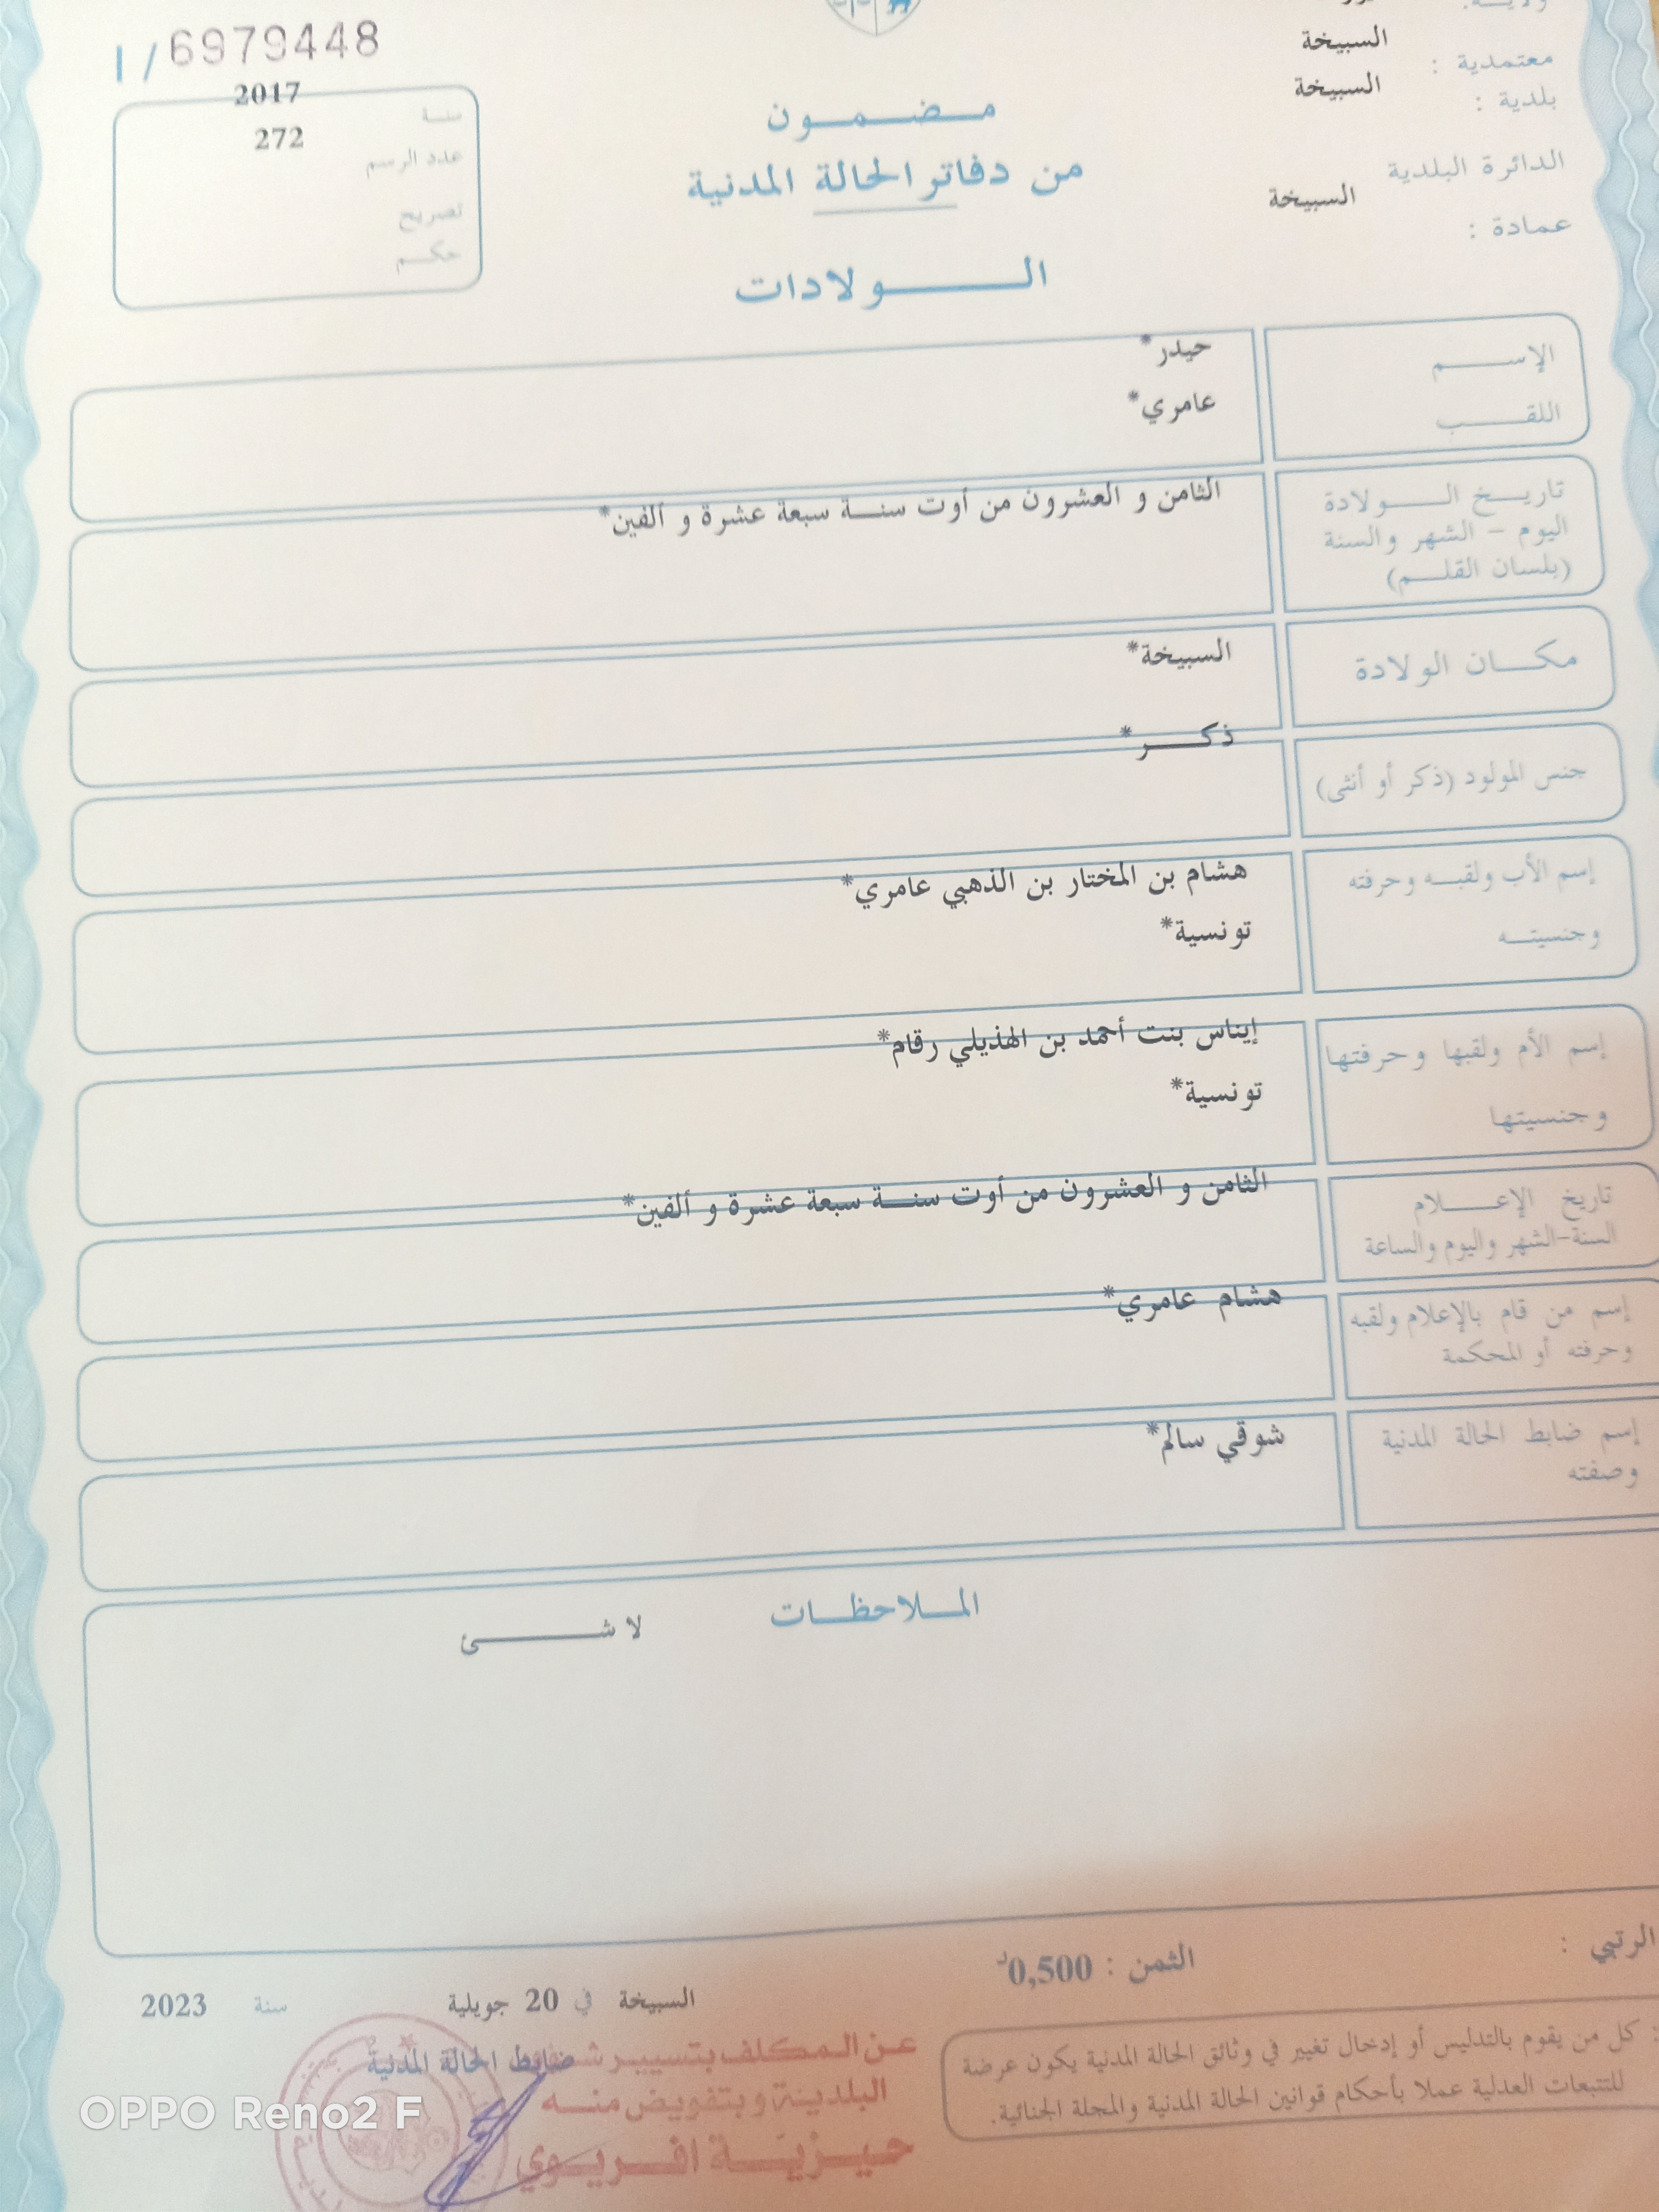 I / 6979448
السبيخة
معتمدية :
السبيخة
بلدية :
الدائرة البلدية
السبيخة
عمادة :
سنة 2017
عدد الرسم 272
تصريح
حكم
مضمون
من دفاتر الحالة المدنية
الولادات
الإسم حيدر*
اللقب عامري*
تاريخ الولادة الثامن و العشرون من أوت سنة سبعة عشرة و ألفين*
اليوم - الشهر والسنة
(بلسان القلم)
مكان الولادة السبيخة*
جنس المولود (ذكر أو أنثى) ذكر*
إسم الأب ولقبه وحرفته هشام بن المختار بن الذهبي عامري*
وجنسيته تونسية*
إسم الأم ولقبها وحرفتها إيناس بنت أحمد بن الهذيلي رقام*
وجنسيتها تونسية*
تاريخ الإعلام الثامن و العشرون من أوت سنة سبعة عشرة و ألفين*
السنة-الشهر واليوم والساعة
إسم من قام بالإعلام ولقبه هشام عامري*
وحرفته أو المحكمة
إسم ضابط الحالة المدنية شوقي سالم*
وصفته
الملاحظات
لا شئ
الرتبي :
الثمن : 0,500د
السبيخة في 20 جويلية سنة 2023
ضابط الحالة المدنية
عن المكلف بتسيير
البلدية وبتفويض منه
حيزية افريوي
كل من يقوم بالتدليس أو إدخال تغيير في وثائق الحالة المدنية يكون عرضة
للتتبعات العدلية عملا بأحكام قوانين الحالة المدنية والمجلة الجنائية.
OPPO Reno2 F